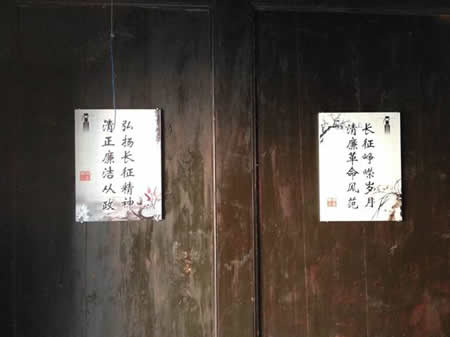 弘扬长征精神
清正廉洁从政
长征峥嵘岁月
清廉革命风范